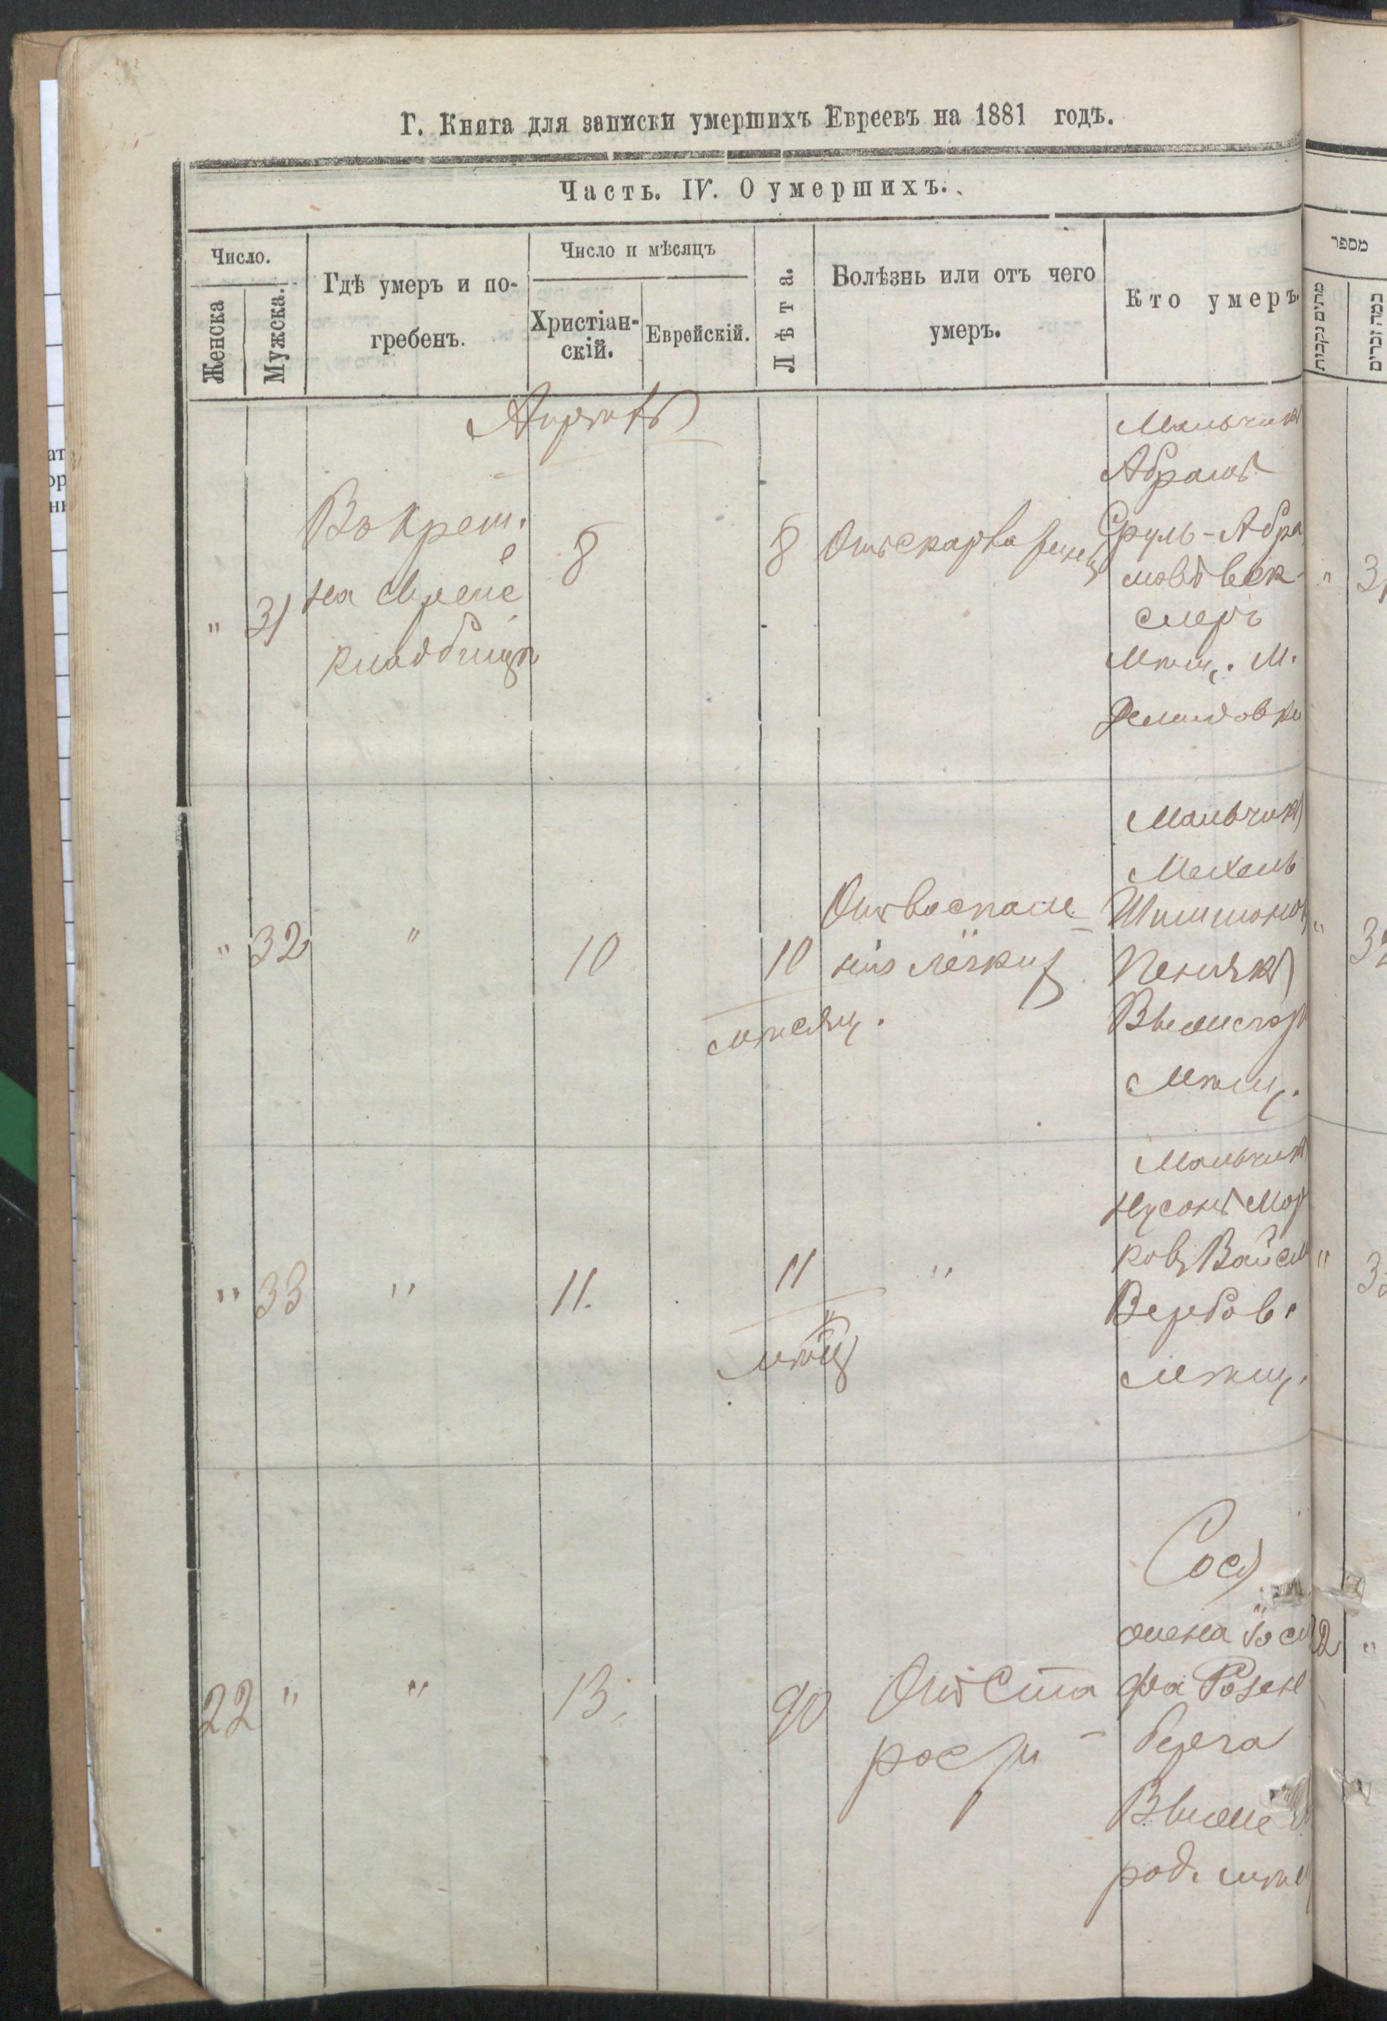 Г. Книга для записки умершихъ Евреевъ на 1881 годъ.
Часть. IV. О умершихъ.
Число.
Женска
Мужска.
Гдѣ умеръ и по-
гребенъ.
Число и мѣсяцъ
Христіан-
скій.
Еврейскій.
Лѣта.
Болѣзнь или отъ чего
умеръ.
Кто умеръ.
מספר
מהים נקבות
כמה זכרים
" 31
В Креш.
на Еврейс
кладбищѣ
8
8
Отъ скарлатины
Мальчикъ
Абрамъ
Сруль-Абра
мовъ Век
слеръ
Мѣщ. М.
Демидовки
" 3
" 32
"
10
10
мѣсяц.
Отъ воспале
нія лёгких
Мальчикъ
Мехель
Шимонов
Пенякъ
Мѣщ.
" 3
" 33
"
11.
11
мѣсц
"
Мальчик
Нусонъ Мор
ковъ Вайсм
Вербов.
Мѣщ.
" 3
22 "
"
13.
90
Отъ Ста
рости
Сося
жена Іоси
фа Розен
берга
Выше
род. мѣщ
22 "